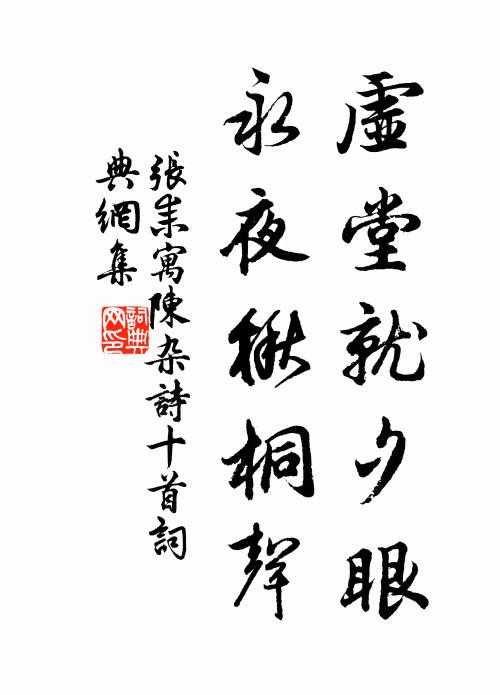 虛堂就夕眼
永夜楸桐聲
張耒寓陳杂詩十首詞
典網集
詞典
网印